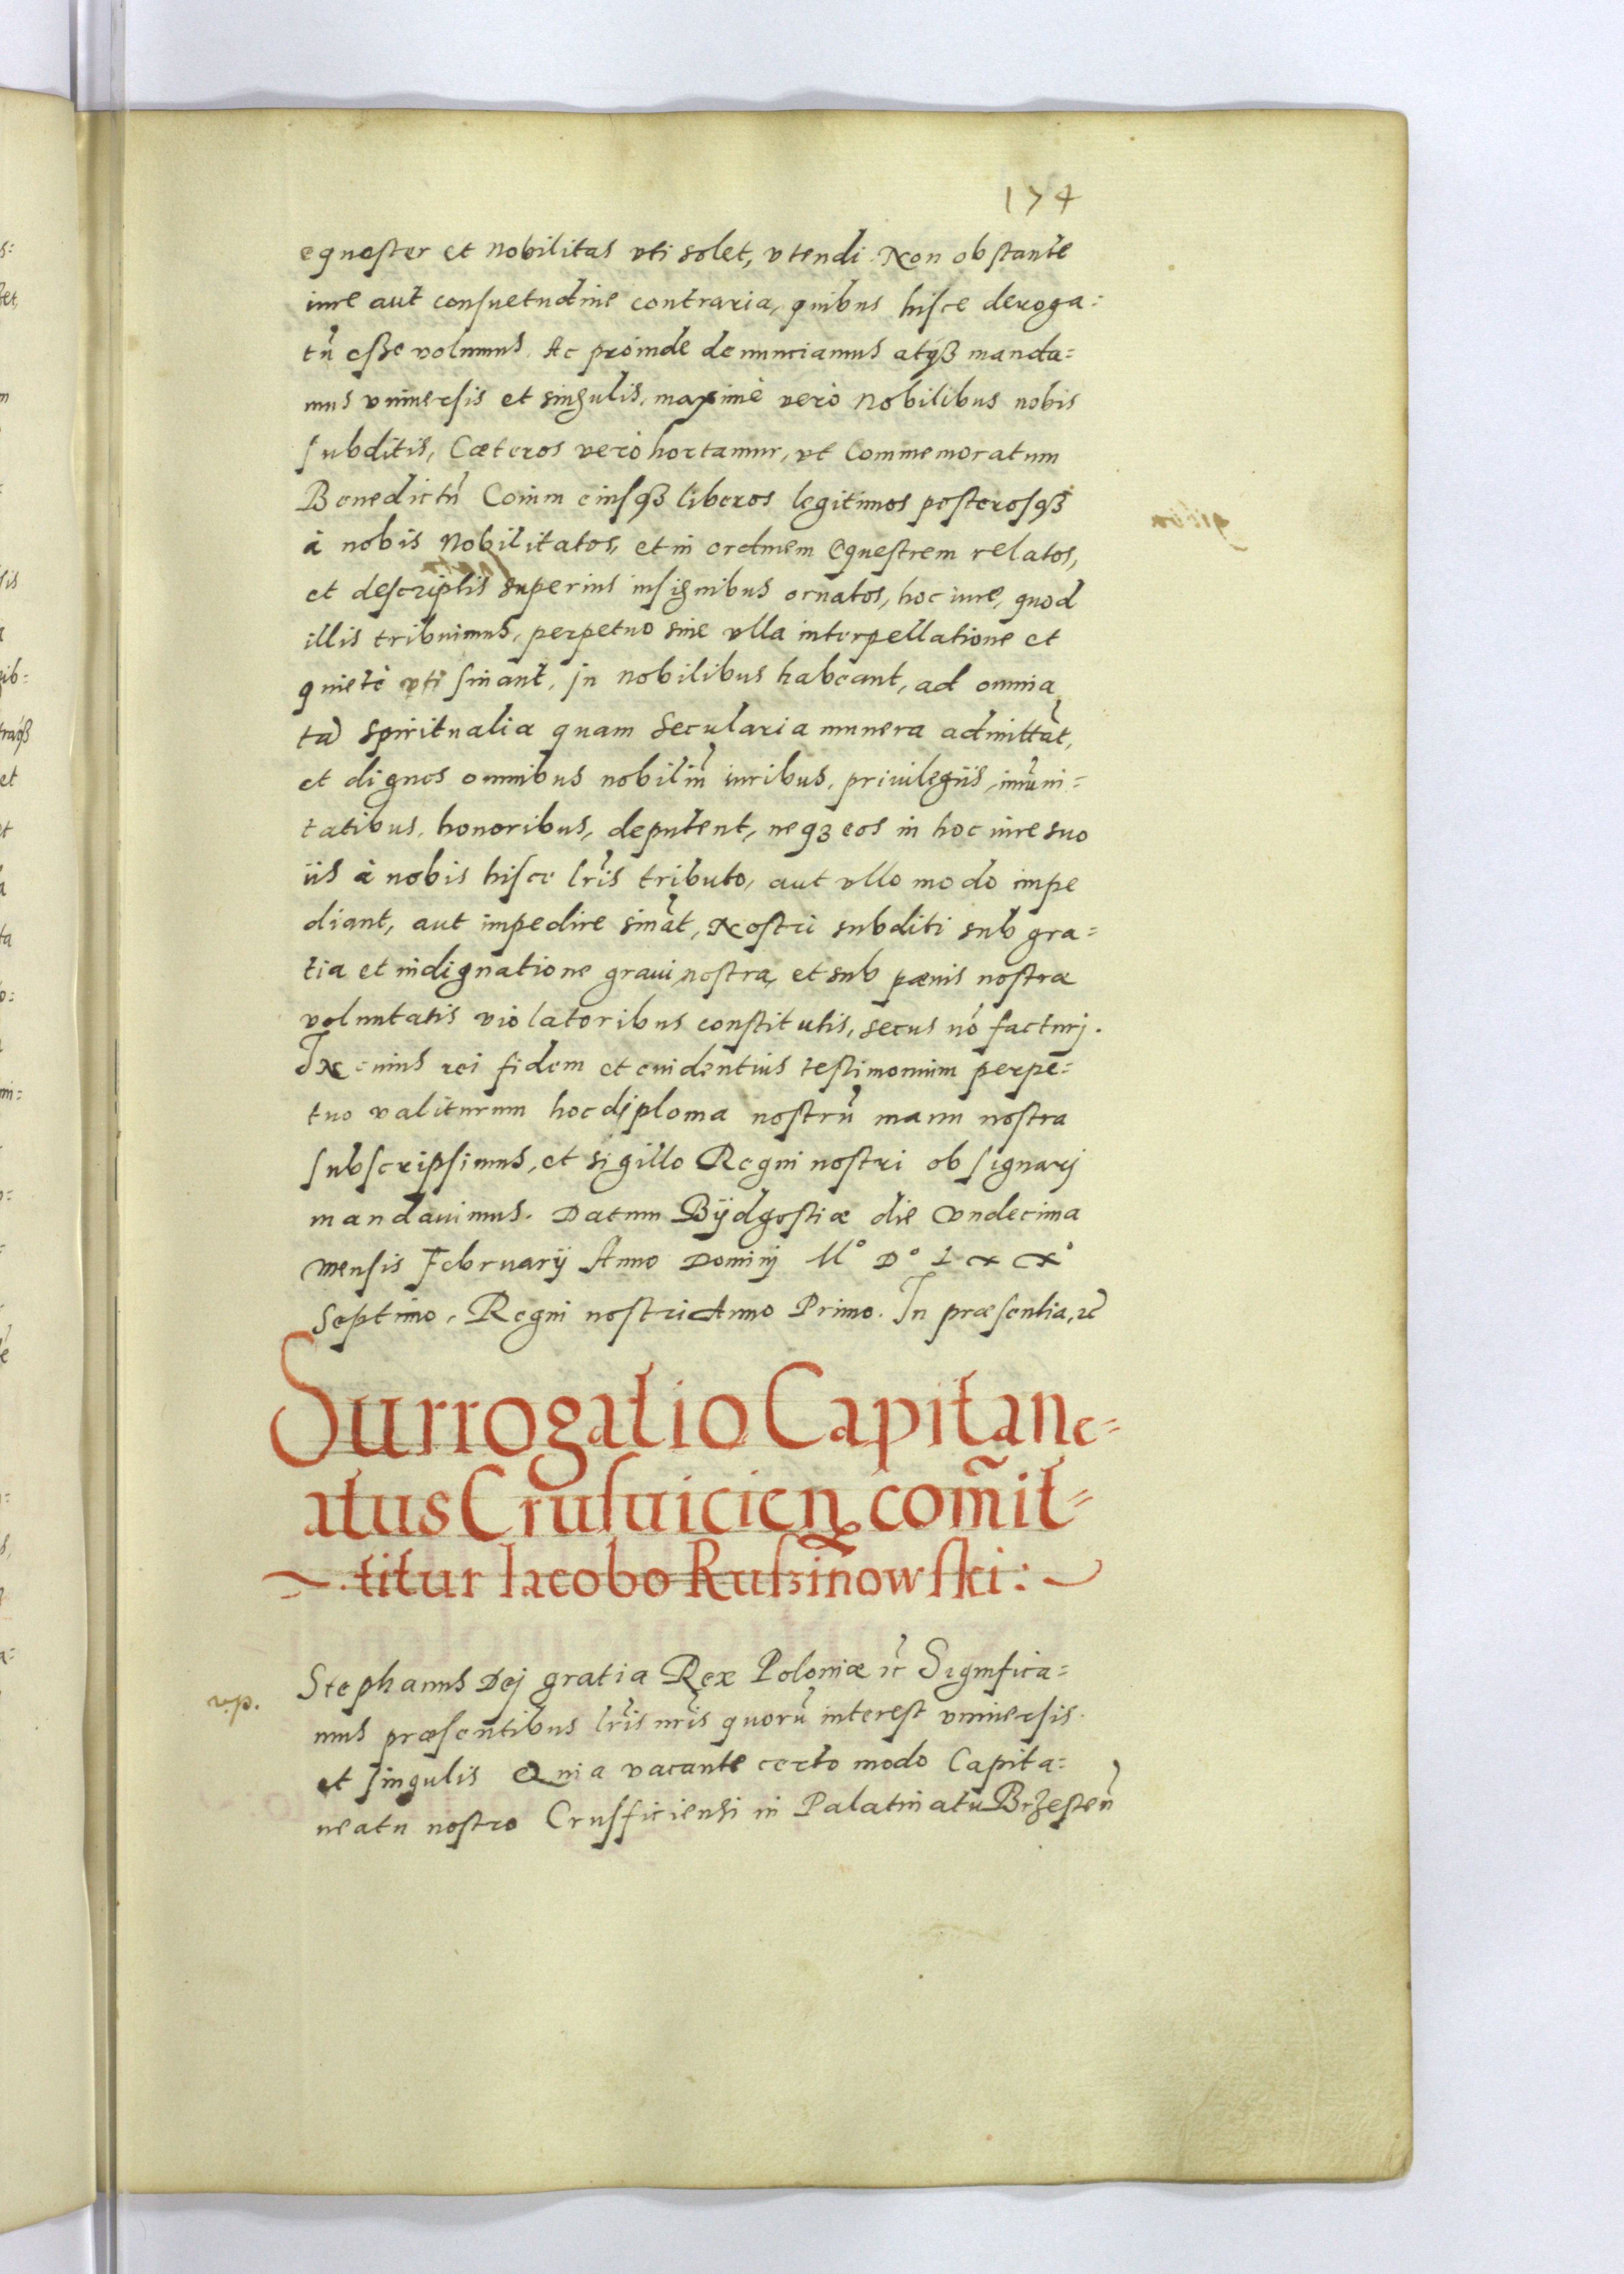 174
equester et Nobilitas vti solet, vtendi. Non obstante
iure aut consuetudine contraria, quibus hisce deroga:
tũ eſse volumus. Ac proinde denunciamus atqȝ manda=
mus vniuersis et singulis, maximè verò Nobilibus nobis
subditis, Cæteros verò hortamur, vt Commemoratum
Benedictũ Coium eiusqȝ liberos legitimos posterosqȝ
à nobis Nobilitatos, et in ordinem equestrem relatos,
et descriptis superius insignibus ornatos, hoc iure, quod
illis tribuimus, perpetuo sine vlla interpellatione et
quietè vti sinant, in nobilibus habeant, ad omnia
tã spiritualia quam secularia munera admittãt,
et dignos omnibus nobiliũ iuribus, priuilegiis, imũni=
tatibus, honoribus, deputent, neqȝ eos in hoc iure suo
iis à nobis hisce lr̃is tributo, aut vllo modo impe
diant, aut impedire sinãt, Nostri subditi sub gra=
tia et indignatione graui nostra, et sub pænis nostræ
voluntatis violatoribus constitutis, secus nõ facturj.
In cuius rei fidem et euidentius testimonium perpe=
tuo valiturum hoc diploma nostrũ manu nostra
subscripsimus, et sigillo Regni nostri obsignarj
mandauimus. Datum Bÿdgostiæ die Vndecima
mensis Februarÿ Anno Dominj M° D° LXX°
Septimo, Regni nostri Anno Primo. In præsentia, rc̃
Surrogatio Capitane=
atus Crusuicien̄ com̃it=
titur Iacobo Ruszin̄owski:
v.p.
Stephanus Dej gratia Rex Poloniæ rc̃ Significa=
mus præsentibus lr̃is nr̃is quorũ interest vniuersis.
et singulis Quia vacante certo modo Capita=
neatu nostro Crusficiensi in Palatinatu Brzesteñ